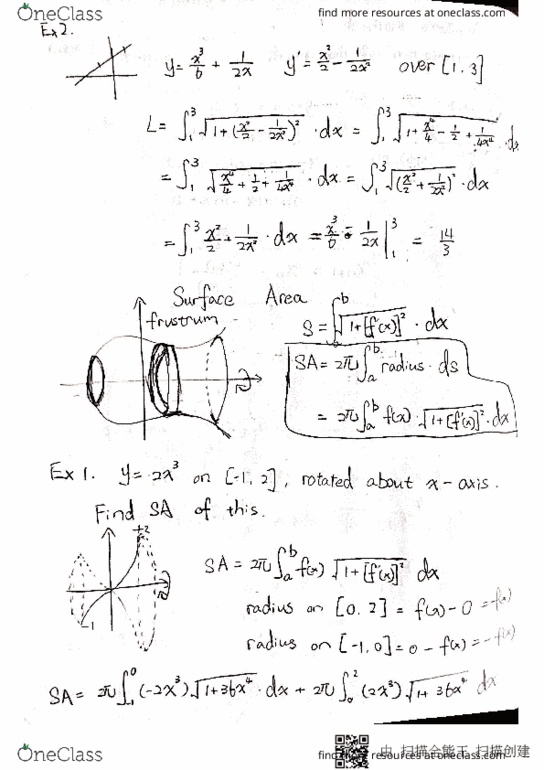 OneClass
find more resources at oneclass.com
Ex2.
y = x³/6 + 1/2x   y' = x²/2 - 1/2x²   over [1,3]
L = ∫₁³ √(1+(x²/2 - 1/2x²)²) · dx = ∫₁³ √(1+x⁴/4 - 1/2 + 1/4x⁴) · dx
= ∫₁³ √(x⁴/4 + 1/2 + 1/4x⁴) · dx = ∫₁³ √(x²/2 + 1/2x²)² · dx
= ∫₁³ x²/2 + 1/2x² · dx = x³/6 - 1/2x |₁³ = 14/3
Surface Area
frustrum
S = ∫ₐᵇ √(1+[f'(x)]²) · dx
SA = 2π ∫ₐᵇ radius · ds
= 2π ∫ₐᵇ f(x) · √(1+[f'(x)]²) · dx
Ex 1. y = 2x³ on [-1, 2], rotated about x-axis.
Find SA of this.
+2
-1
SA = 2π ∫ₐᵇ f(x) √(1+[f'(x)]²) dx
radius on [0, 2] = f(x) - 0 = f(x)
radius on [-1, 0] = 0 - f(x) = -f(x)
SA = 2π ∫₋₁⁰ (-2x³) √(1+36x⁴) · dx + 2π ∫₀² (2x³) √(1+36x⁴) dx
OneClass
find more resources at oneclass.com
由 扫描全能王 扫描创建